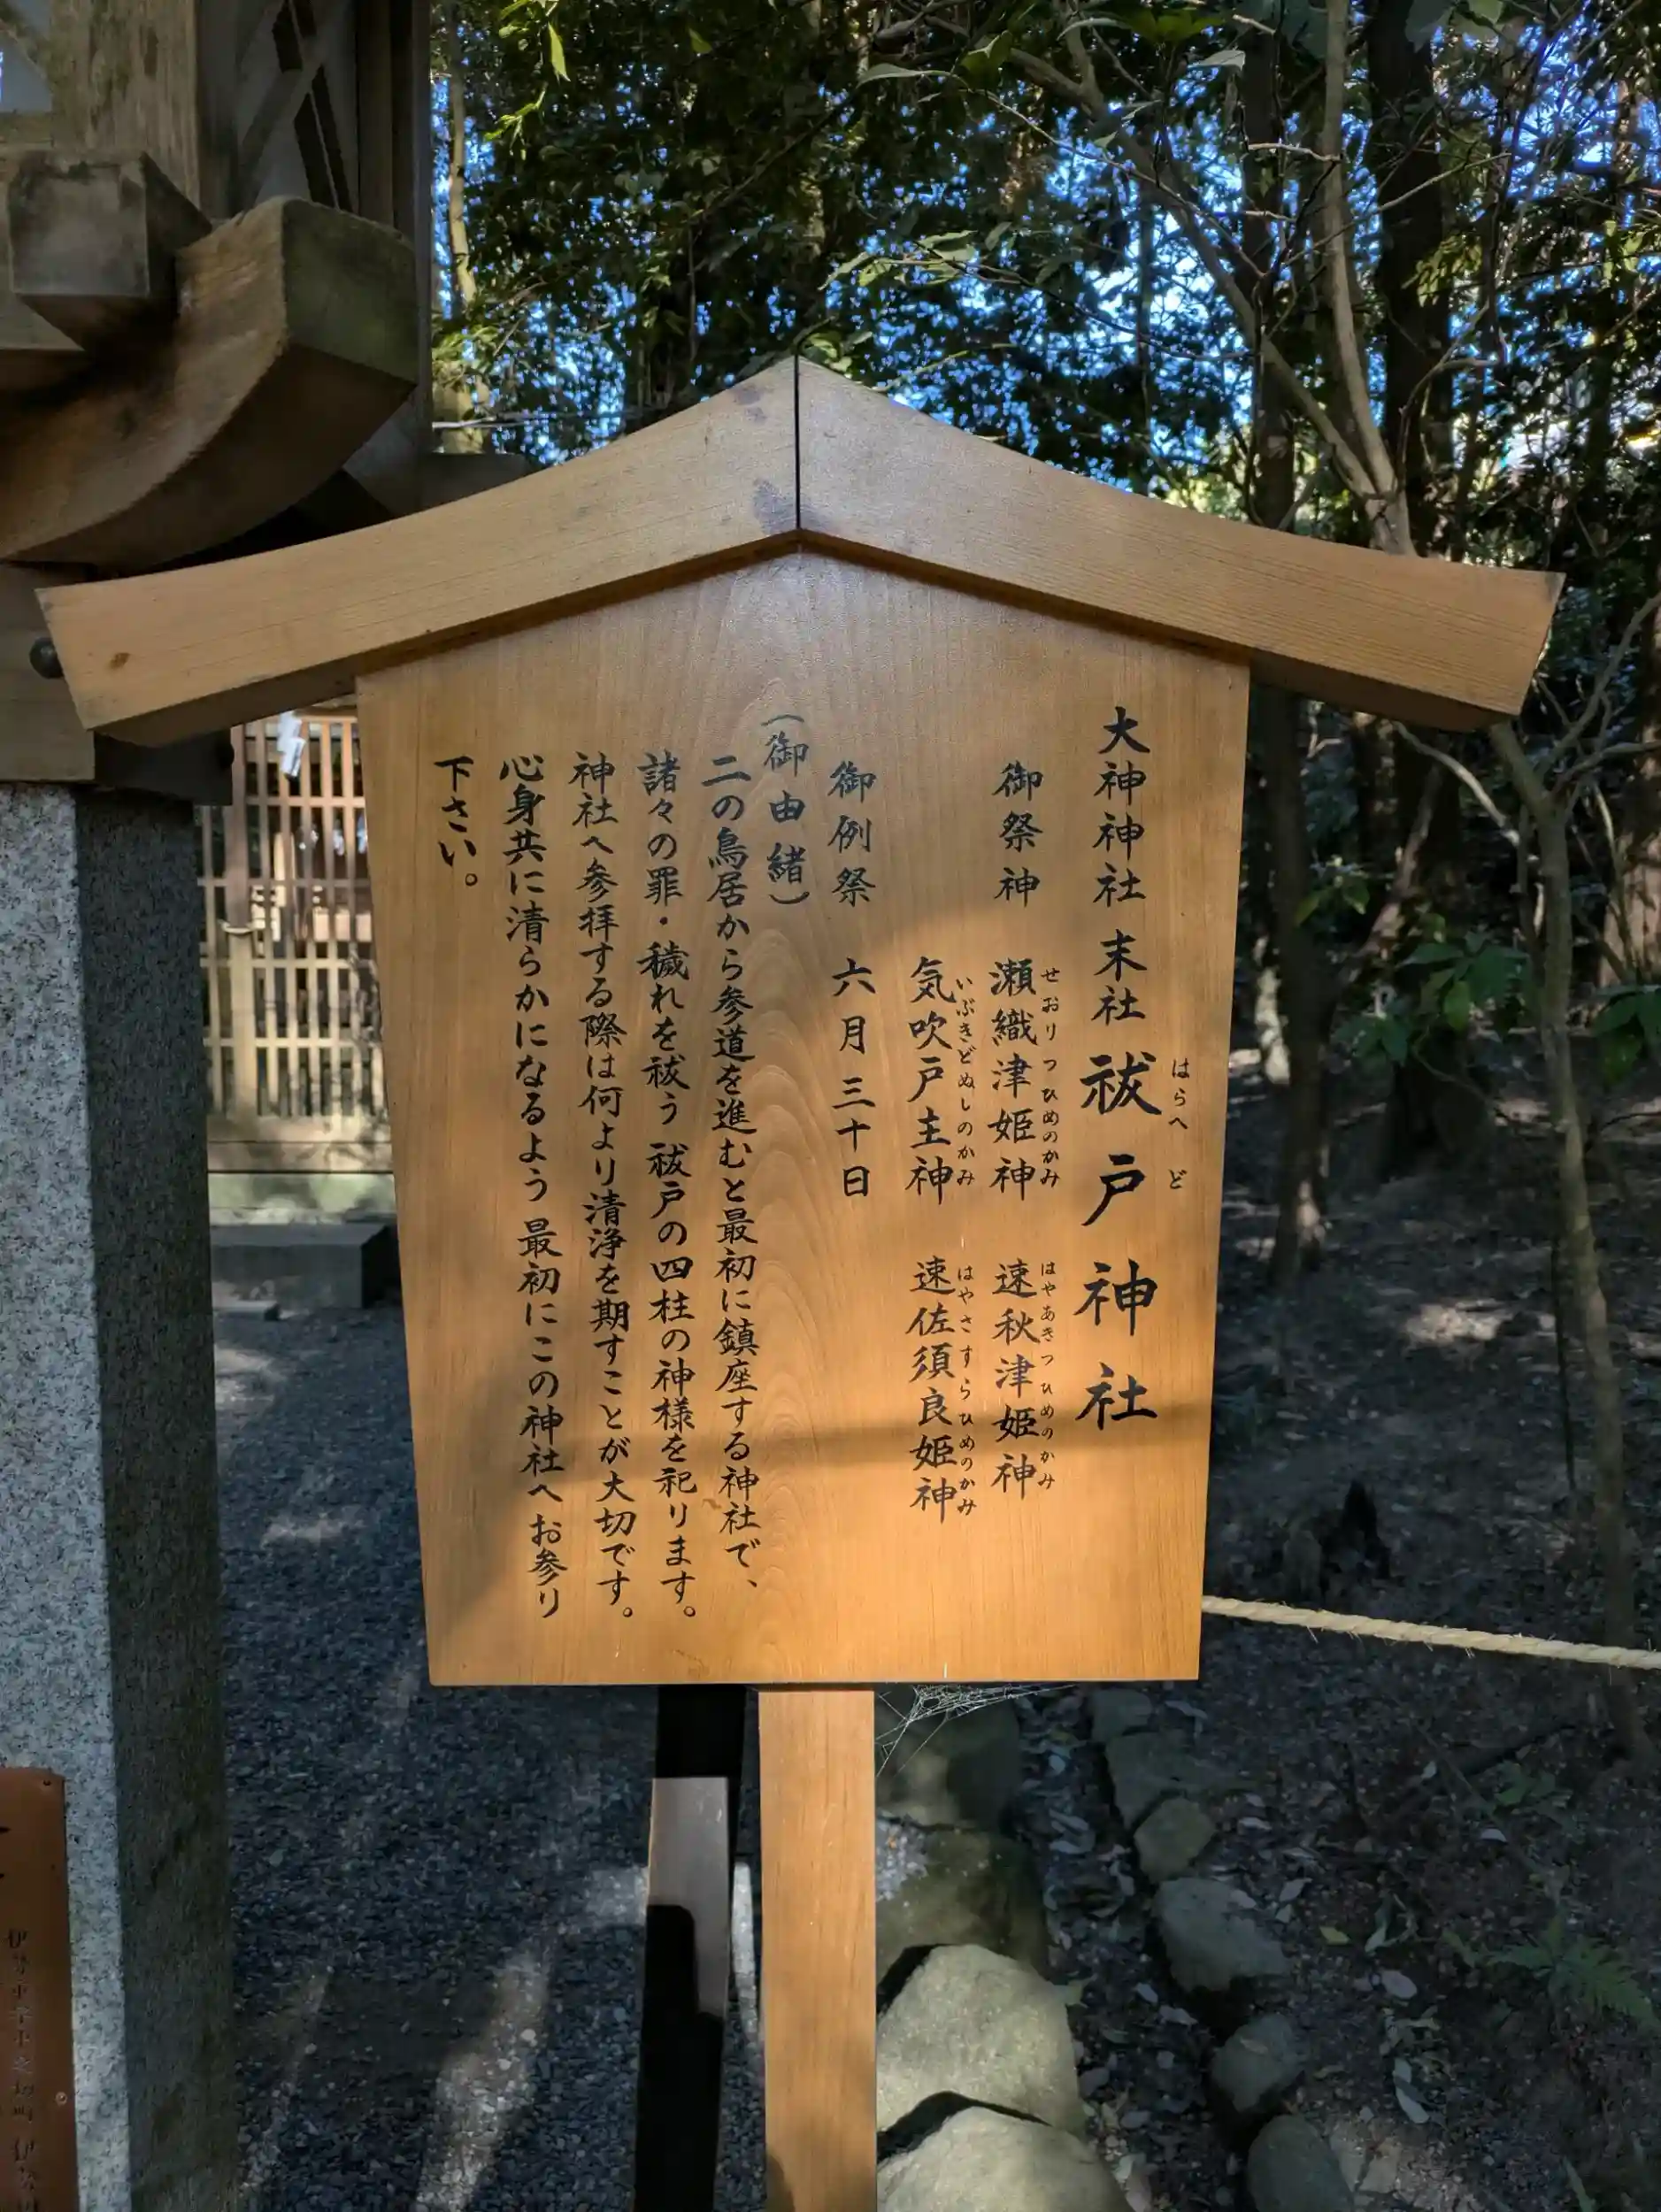 大神神社末社 祓戸神社
はらへど
御祭神 瀬織津姫神 速秋津姫神
せおりつひめのかみ はやあきつひめのかみ
気吹戸主神 速佐須良姫神
いぶきどぬしのかみ はやさすらひめのかみ
御例祭 六月三十日
(御由緒)
二の鳥居から参道を進むと最初に鎮座する神社で、
諸々の罪・穢れを祓う祓戸の四柱の神様を祀ります。
神社へ参拝する際は何より清浄を期すことが大切です。
心身共に清らかになるよう最初にこの神社へお参り
下さい。